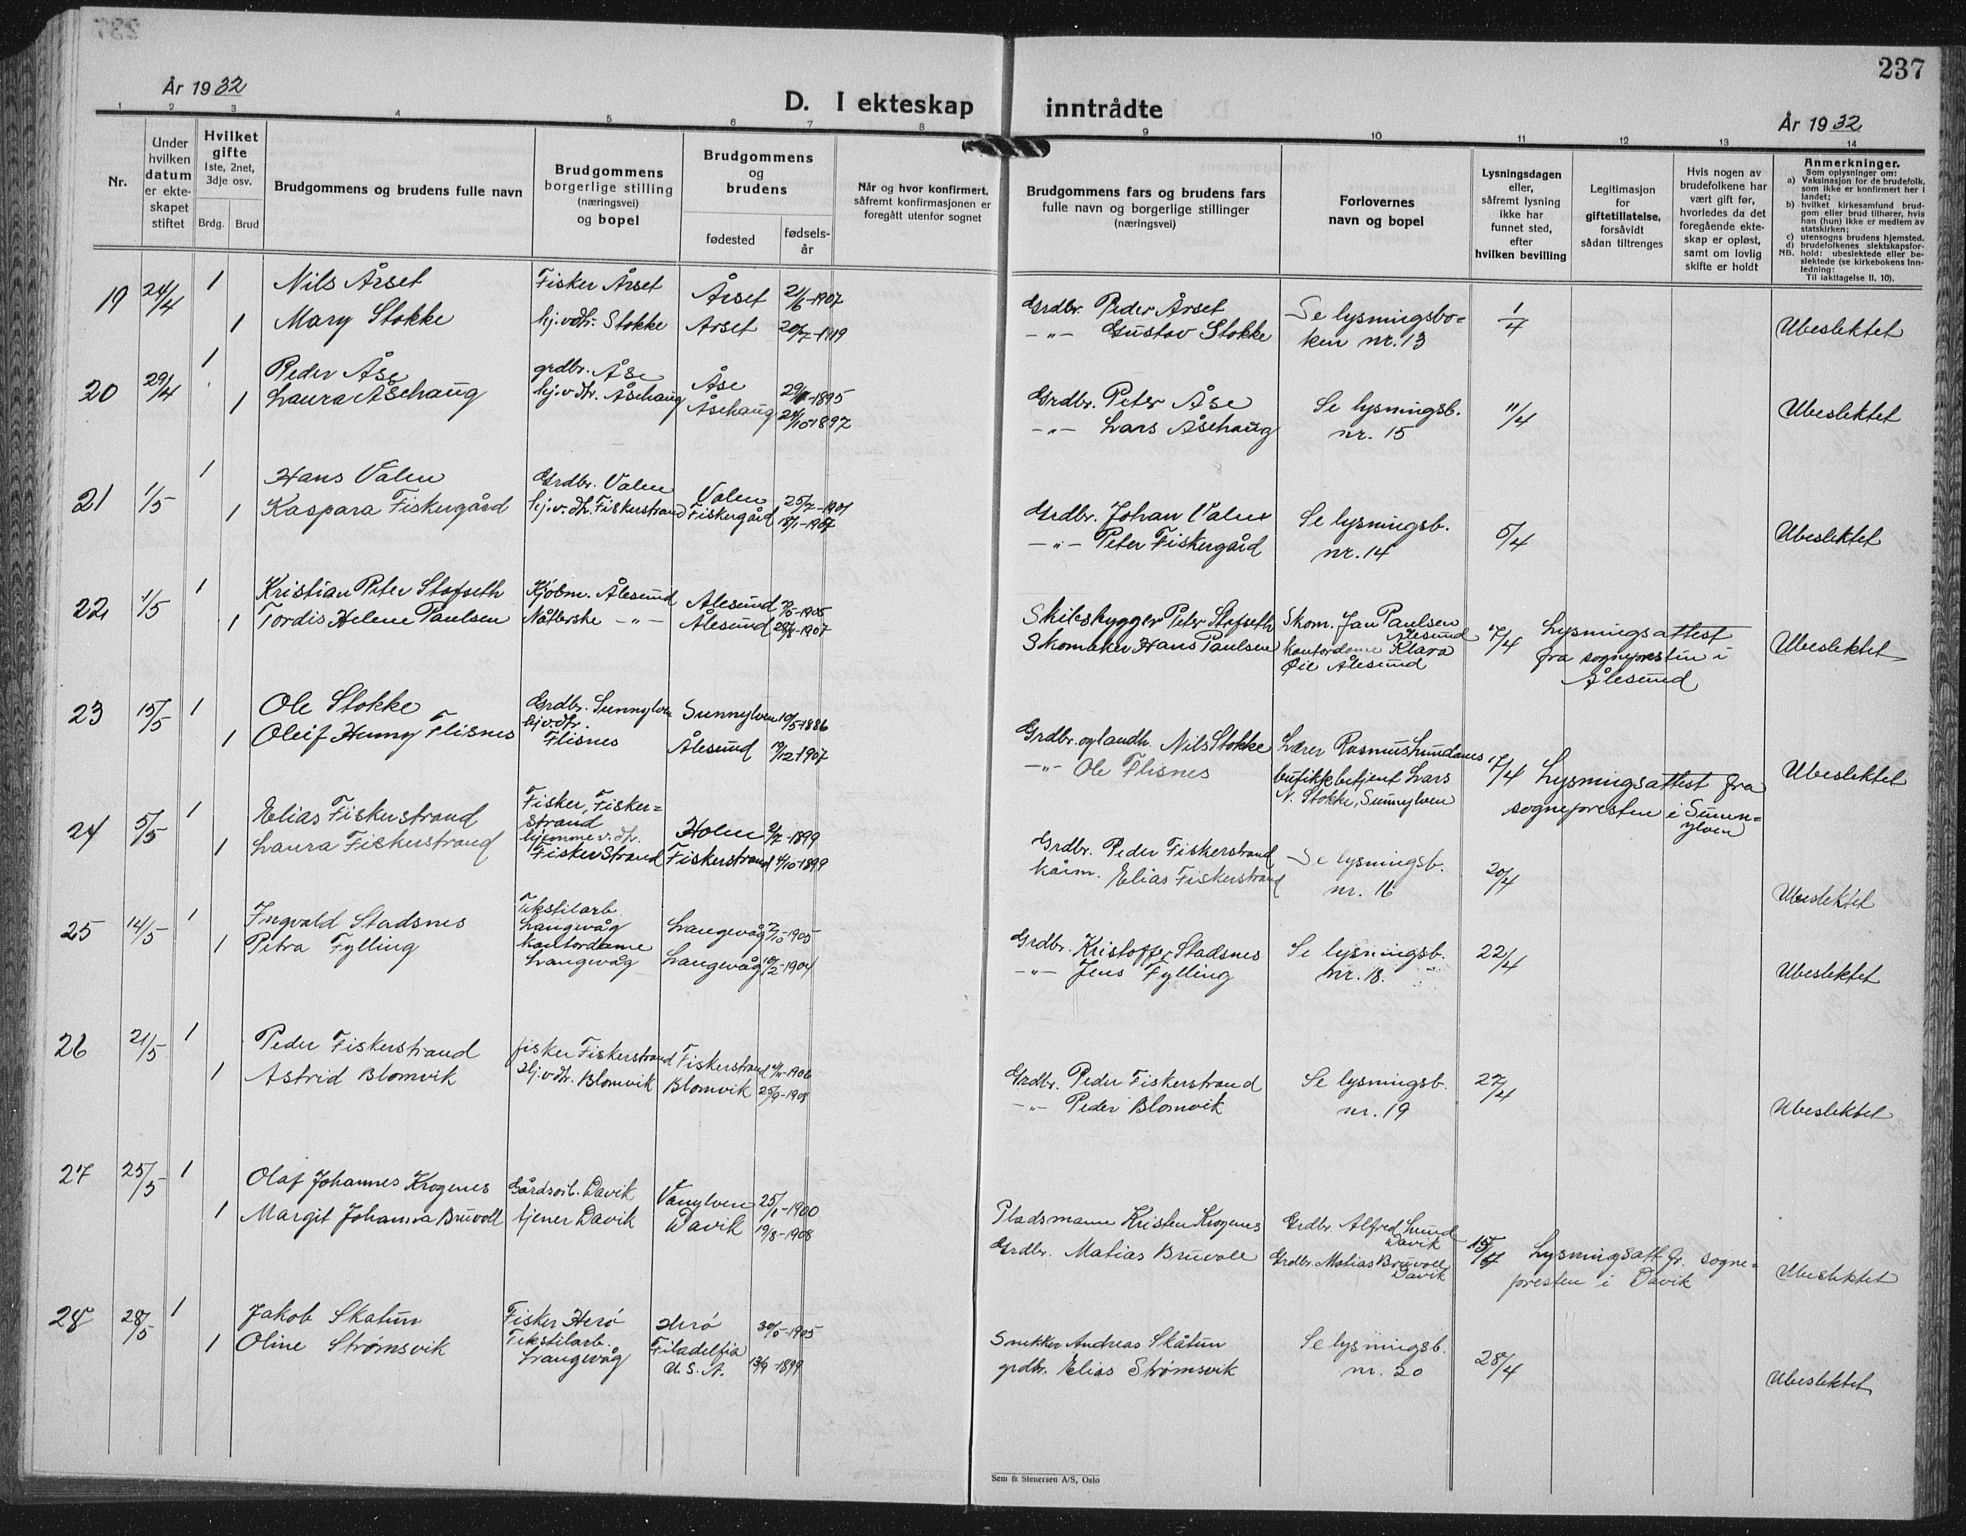 237
År 1932
D. I ekteskap inntrådte
År 1932
1 2 3 4 5 6 7 8 9 10 11 12 13 14
Nr.
Under hvilken datum er ekteskapet stiftet
Hvilket gifte
1ste, 2net, 3dje osv.
Brdg. Brud
Brudgommens og brudens fulle navn
Brudgommens borgerlige stilling (næringsvei) og bopel
Brudgommens og brudens
fødested
fødselsår
Når og hvor konfirmert, såfremt konfirmasjonen er foregått utenfor sognet
Brudgommens fars og brudens fars fulle navn og borgerlige stillinger (næringsvei)
Forlovernes navn og bopel
Lysningsdagen eller, såfremt lysning ikke har funnet sted, efter hvilken bevilling
Legitimasjon for giftetillatelse, forsåvidt sådan tiltrenges
Hvis nogen av brudefolkene har vært gift før, hvorledes da det foregående ekteskap er opløst, samt om lovlig skifte er holdt
Anmerkninger.
Som oplysninger om:
a) Vaksinasjon for de brudefolk, som ikke er konfirmert her i landet;
b) hvilket kirkesamfund brudgom eller brud tilhører, hvis han (hun) ikke er medlem av statskirken;
c) utensogns brudens hjemsted.
d) brudefolkenes slektskapsforhold: ubeslektede eller beslektede (se kirkebokens Innledning:
NB.
Til iakttagelse II. 10).
19 24/4 1 Nils Årset Fisker Årset Årset 21/6-1907 Grdbr. Peder Årset Se lysningsbo= 1/4
1 Mary Stokke hj.v.dtr. Stokke Årset 20/7-1919 -"- Gustav Stokke ken nr. 13 Ubeslektet
20 29/4 1 Peder Åse grdbr. Åse Åse 1895 Grdbr. Peter Åse Se lysningsb. 11/4 Ubeslektet
1 Laura Åsehaug hj.v.dtr. Åsehaug Åsehaug 24/10-1897 -"- Lars Åsehaug nr. 15
21 1/5 1 Hans Valen Grdbr. Valen Valen 25/7-1901 Grdbr. Johan Valen Se lysningsb. 5/4 Ubeslektet
1 Kaspara Fiskergård hj.v.dtr. Fiskerstrand Fiskergård -1907 -"- Peter Fiskergård nr. 14
22 1/5 1 Kristian Peter Stafseth Kjøbm. Ålesund Ålesund -1905 Skibsbygger Peter Stafseth Skom. Jan Paulsen Ålesund 17/4 Lysningsattest
1 Tordis Helene Paulsen Nåtlerske -"- Ålesund 28/8-1907 Skomaker Hans Paulsen kontordame Klara Øie Ålesund fra sognepresten i Ålesund Ubeslektet
23 15/5 1 Ole Stokke Grdbr. Sunnylven Sunnylven 10/5 1886 Grdbr. og landh. Nils Stokke Lærer Rasmus Lundanes 17/4 Lysningsattest fra
1 Oleif Flisnes hj.v.dtr. Flisnes Ålesund 19/12 1907 -"- Ole Flisnes butikkbetjent Lars N. Stokke, Sunnylven sognepresten i Sunn=ylven Ubeslektet
24 5/5 1 Elias Fiskerstrand Fisker, Fisker=strand Holen 2/7-1899 Grdbr. Peder Fiskerstrand Se lysningsb. 20/4
1 Laura Fiskerstrand hjemmev.dtr. Fiskerstrand Fiskerstrand 4/10 1899 kårm. Elias Fiskerstrand nr. 16 Ubeslektet
25 14/5 1 Ingvald Stadsnes Tekstilarb. Langevåg Langevåg /10-1905 Grdbr. Kristoffer Stadsnes Se lysningsb. 22/4
1 Petra Fylling kontordame Langevåg Langevåg 10/2-1904 -"- Jens Fylling nr. 18. Ubeslektet
26 21/5 1 Peder Fiskerstrand fisker Fiskerstrand Fiskerstrand -1906 Grdbr. Peder Fiskerstrand Se lysningsb. 27/4
1 Astrid Blomvik hj.v.dtr. Blomvik Blomvik 25/9-1908 -"- Peder Blomvik nr. 19 Ubeslektet
27 25/5 1 Olaf Johannes Krogenes Davik Vanylven 25/1-1900 Pladsmann Kristen Krogenes Grdbr. Alfred Lund Davik Lysningsatt. fr. sogne=
1 Margit Johanna Bruvoll tjener Davik Davik 19/8-1908 Grdbr. Matias Bruvoll Grdbr. Matias Bruvoll Davik presten i Davik Ubeslektet
28 28/5 1 Jakob Skatun Fisker Herø Herø 30/5-1905 Snekker Andreas Skåtun Se lysningsb. 28/4
1 Oline Strømsvik Tekstilarb. Langevåg Filadelfia U.S.A. 13/9-1899 grdbr. Elias Strømsvik nr. 20 Ubeslektet
Sem & Stenersen A/S, Oslo